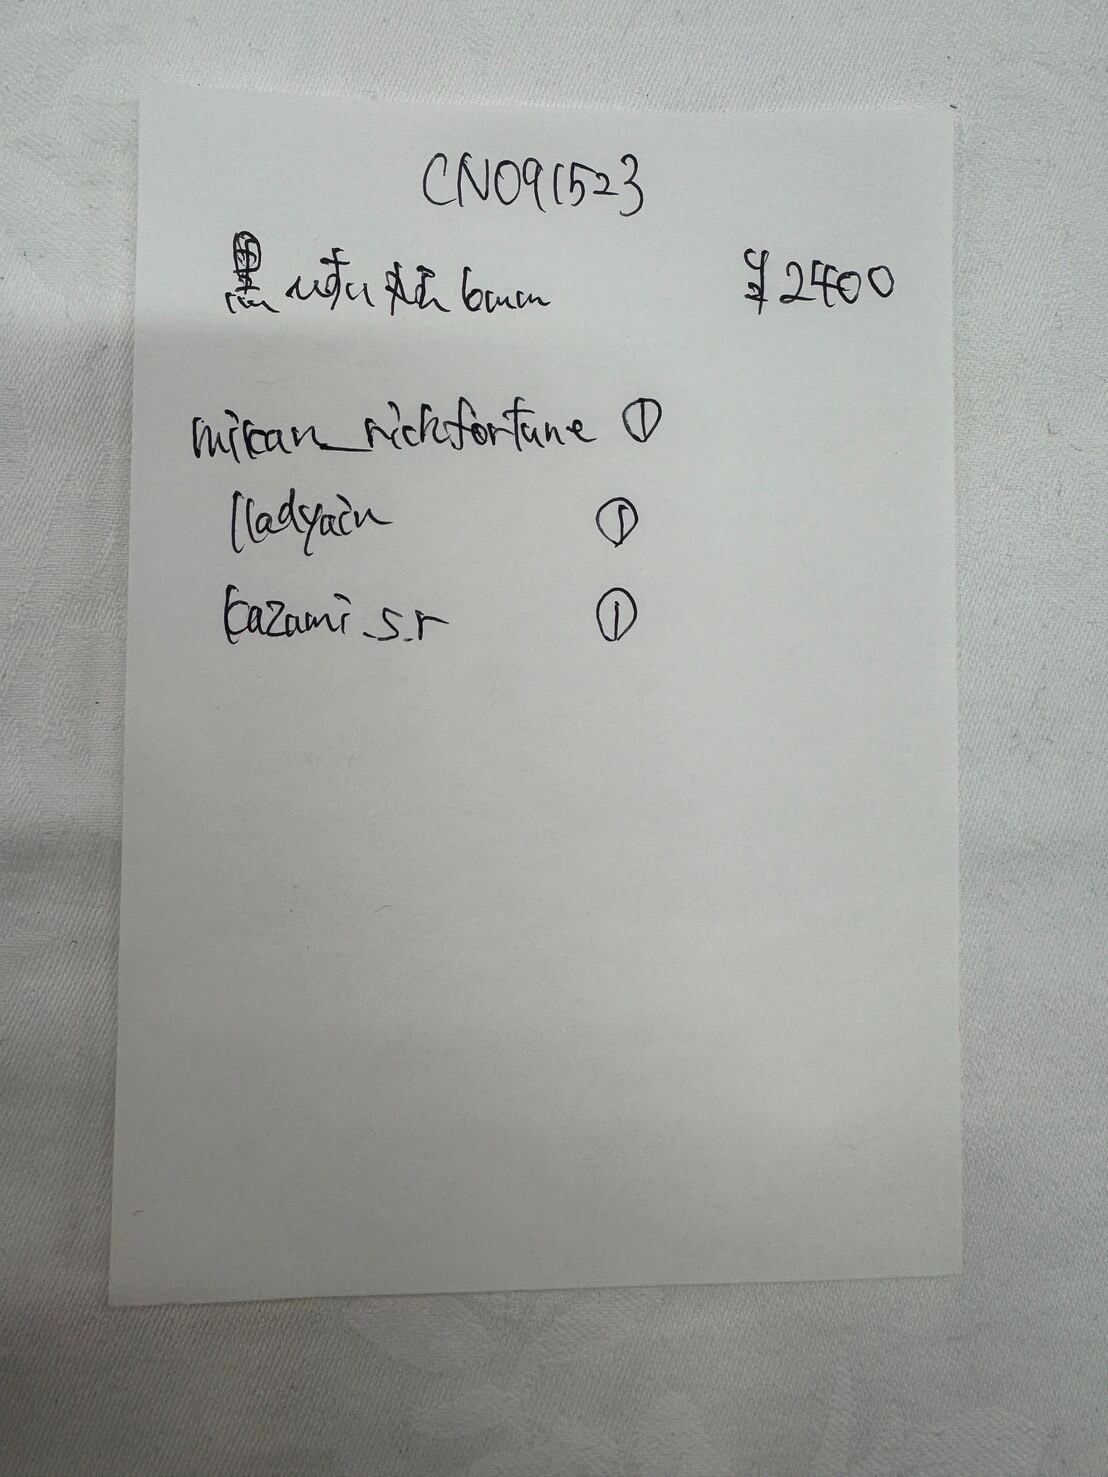 CN091523
黒 6mm ¥2400
mikan_richfortune ①
lladyain ①
kazami.s.r ①